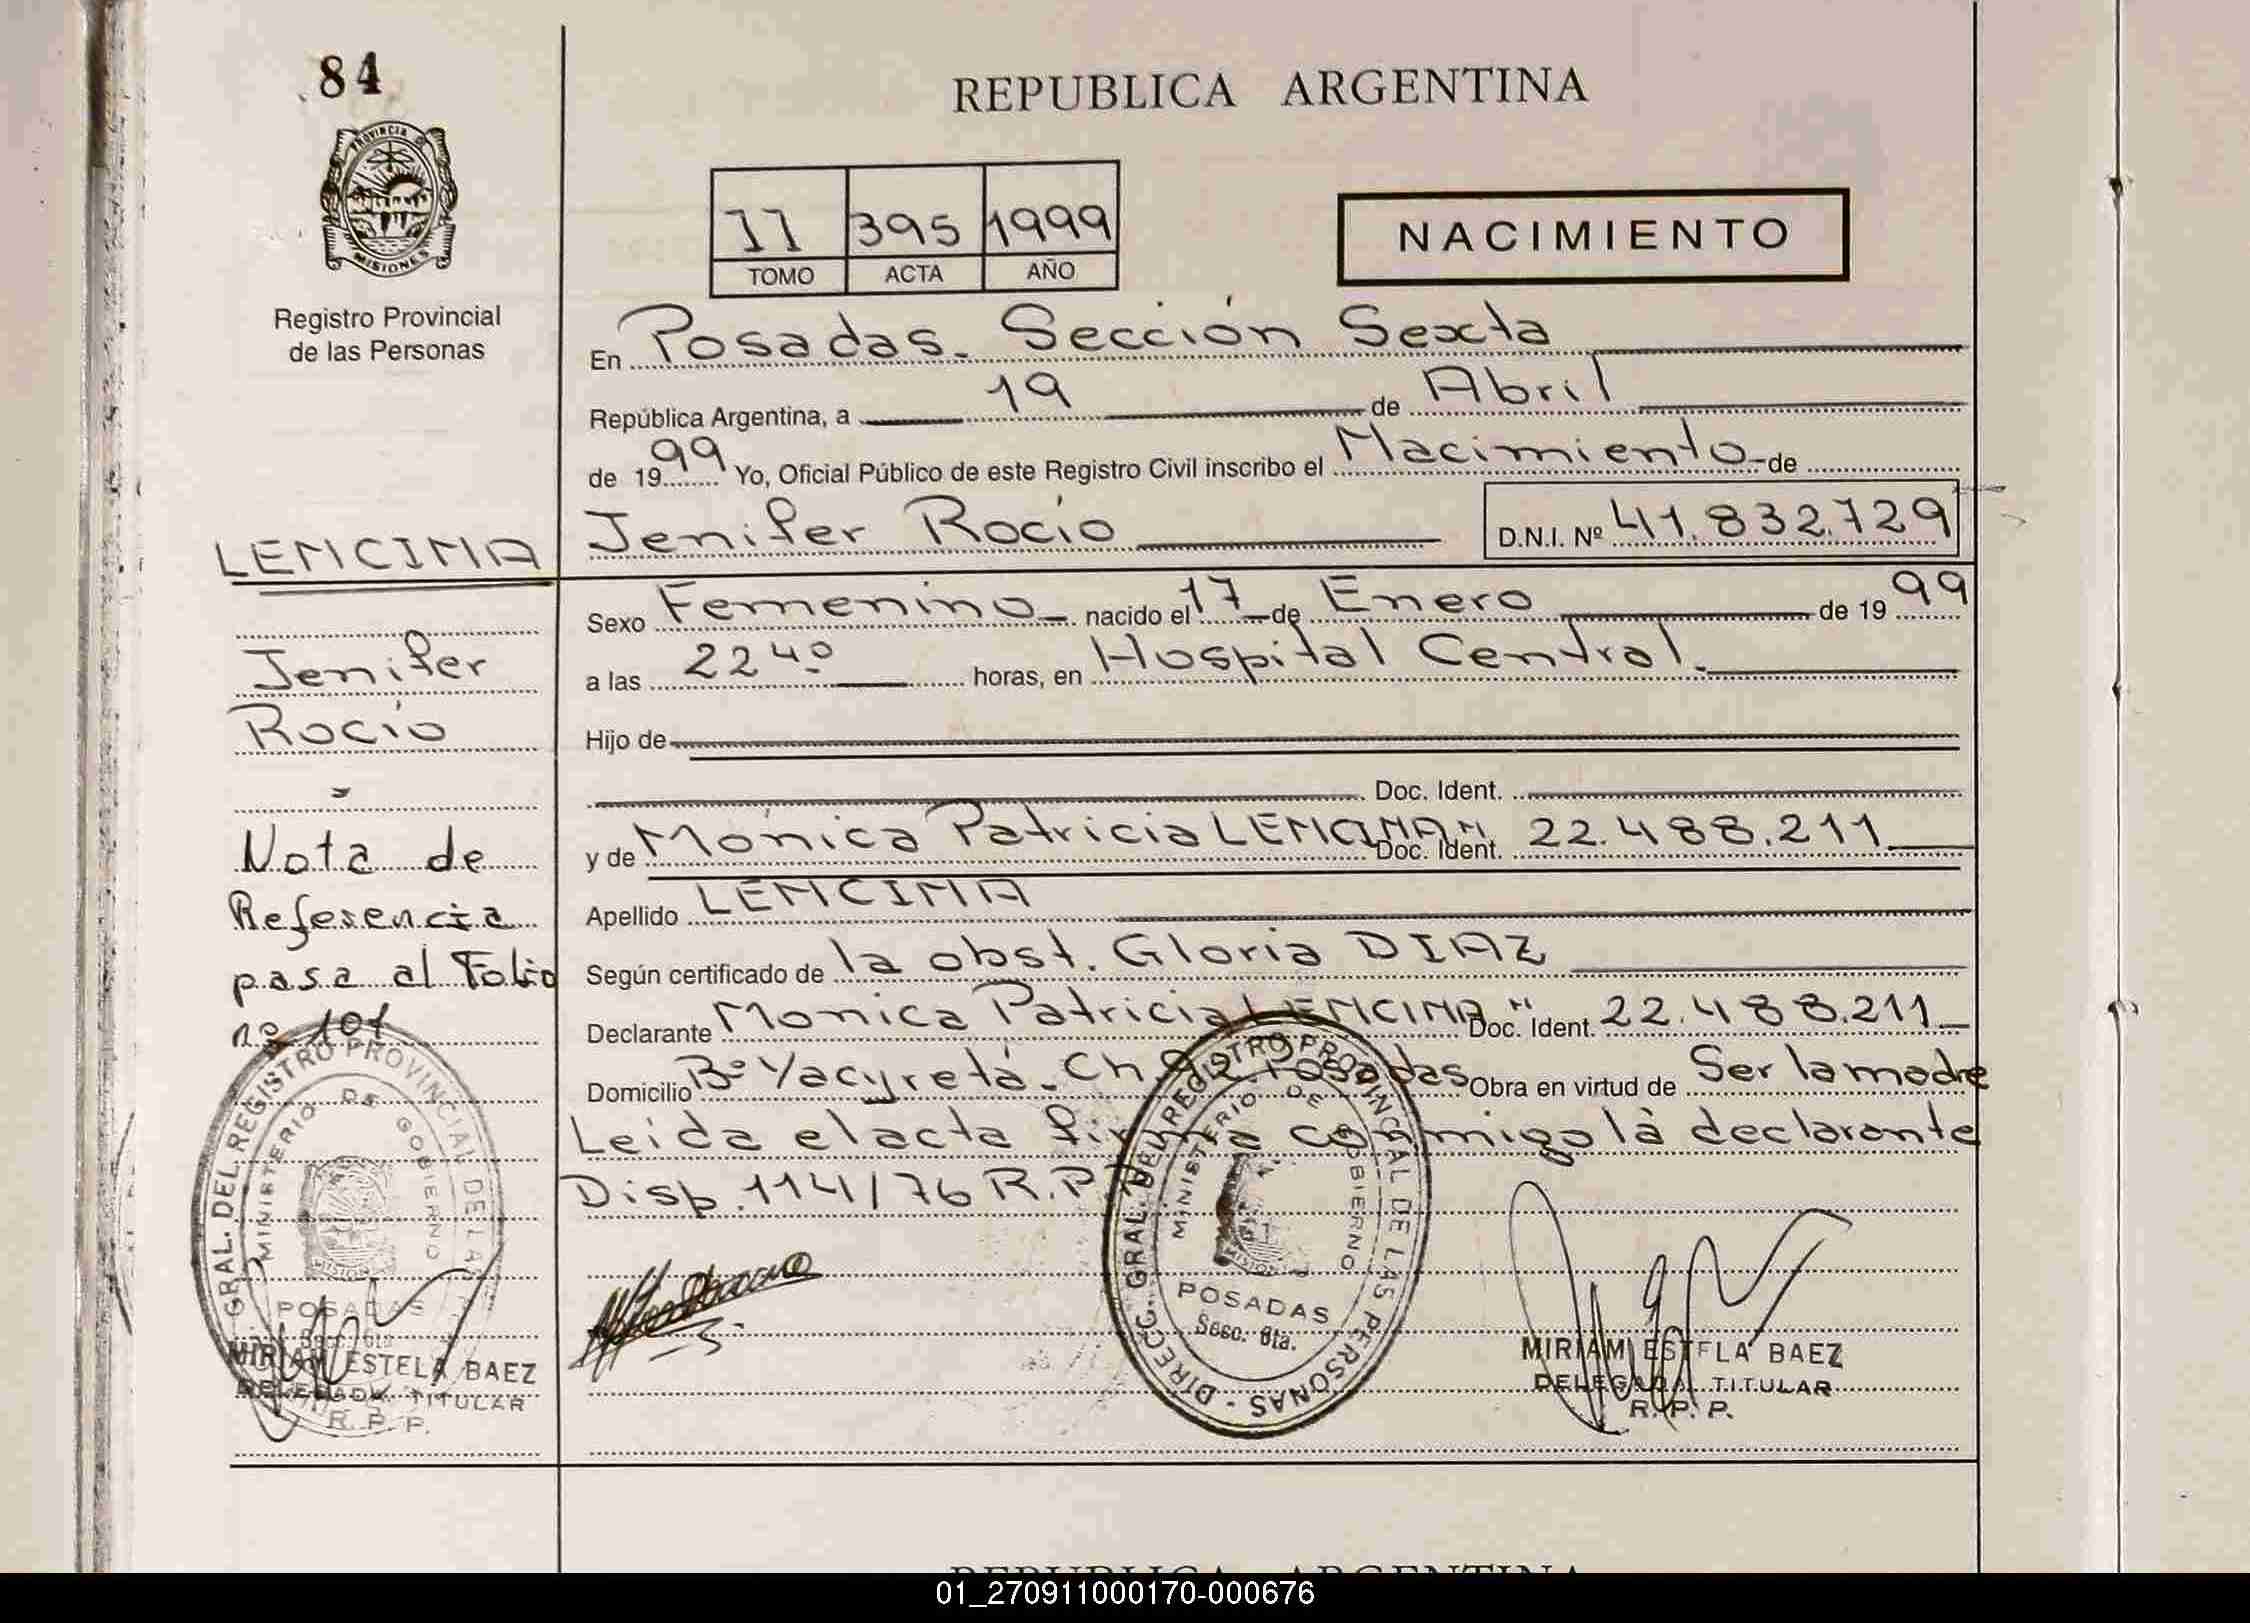 84
PROVINCIA DE
MISIONES
Registro Provincial
de las Personas
REPUBLICA ARGENTINA
II 395 1999
TOMO ACTA AÑO
NACIMIENTO
En Posadas. Sección Sexta
República Argentina, a 19 de Abril
de 1999 Yo, Oficial Público de este Registro Civil inscribo el Nacimiento de
Jenifer Rocío D.N.I. Nº 41.832.729
LENCINA
Jenifer
Rocío
Nota de
Referencia
pasa al Folio
nº 101
Sexo Femenino nacido el 17 de Enero de 1999
a las 22 40 horas, en Hospital Central.
Hijo de
Doc. Ident.
y de Mónica Patricia LENCINA Doc. Ident. 22.488.211
Apellido LENCINA
Según certificado de la obst. Gloria DIAZ
Declarante Monica Patricia LENCINA Doc. Ident. 22.488.211
Domicilio Bº Yacyretá - Ch. Posadas Obra en virtud de Ser la madre
Leida el acta firma conmigo la declarante
Disp. 114/76 R.P
DIRECC. GRAL. DEL REGISTRO PROVINCIAL DE LAS PERSONAS
MINISTERIO DE GOBIERNO
MISIONES
POSADAS
Secc. 6ta.
MIRIAM ESTELA BAEZ
DELEGADA TITULAR
R. P. P.
GRAL. DEL REGISTRO PROVINCIAL DE LA
MINISTERIO DE GOBIERNO
POSADAS
MIRIAM ESTELA BAEZ
DELEGADA TITULAR
R. P. P.
REPUBLICA ARGENTINA
01_270911000170-000676